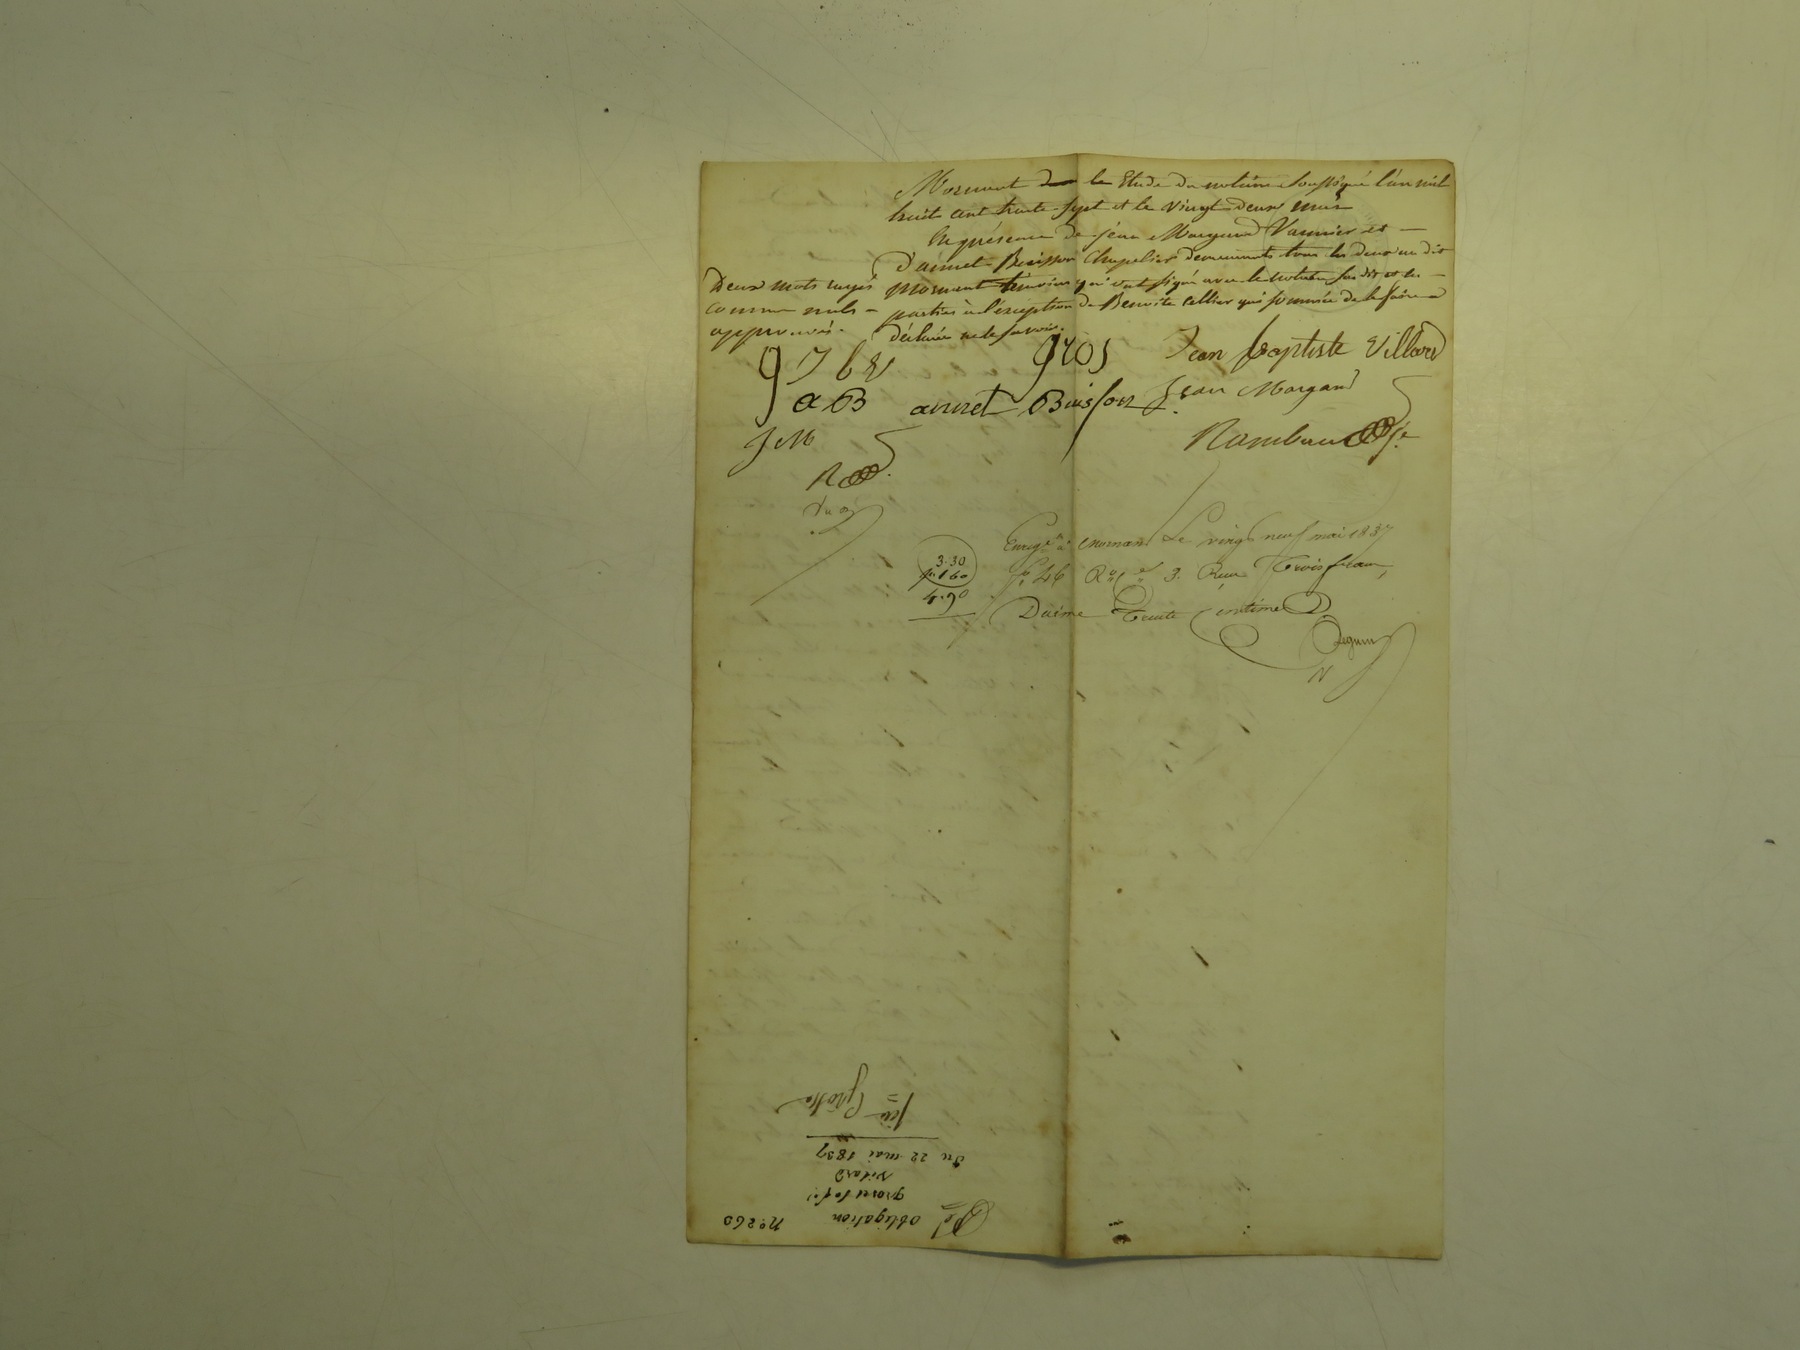 Mornant dans le Etude du notaire soussigné l'an mil
huit cent trente sept et le vingt deux mai
En présence de Jean Morgand Vannier et
d'annet Buisson Chapelier demeurants tous les deux au dit
Mornant témoins qui ont signé avec le notaire susdit et les
parties à l'exception de Benoite Cellier qui sommée de le faire a
déclaré ne le savoir.
Deux mots rayés
comme nuls
approuvés.
g J b v gros Jean baptiste Villard
a B annet Buisson Jean Morgand
J M Rambaud
R
Enreg.é à Mornant Le vingt neuf mai 1837
f.o 46 R.o C.e 3. Reçu Trois francs,
Dixime Trente Centimes
3.30
1 60
4.90
N.o 260
obligation
gros
Vilard
Du 22 mai 1837
1ere Grosse